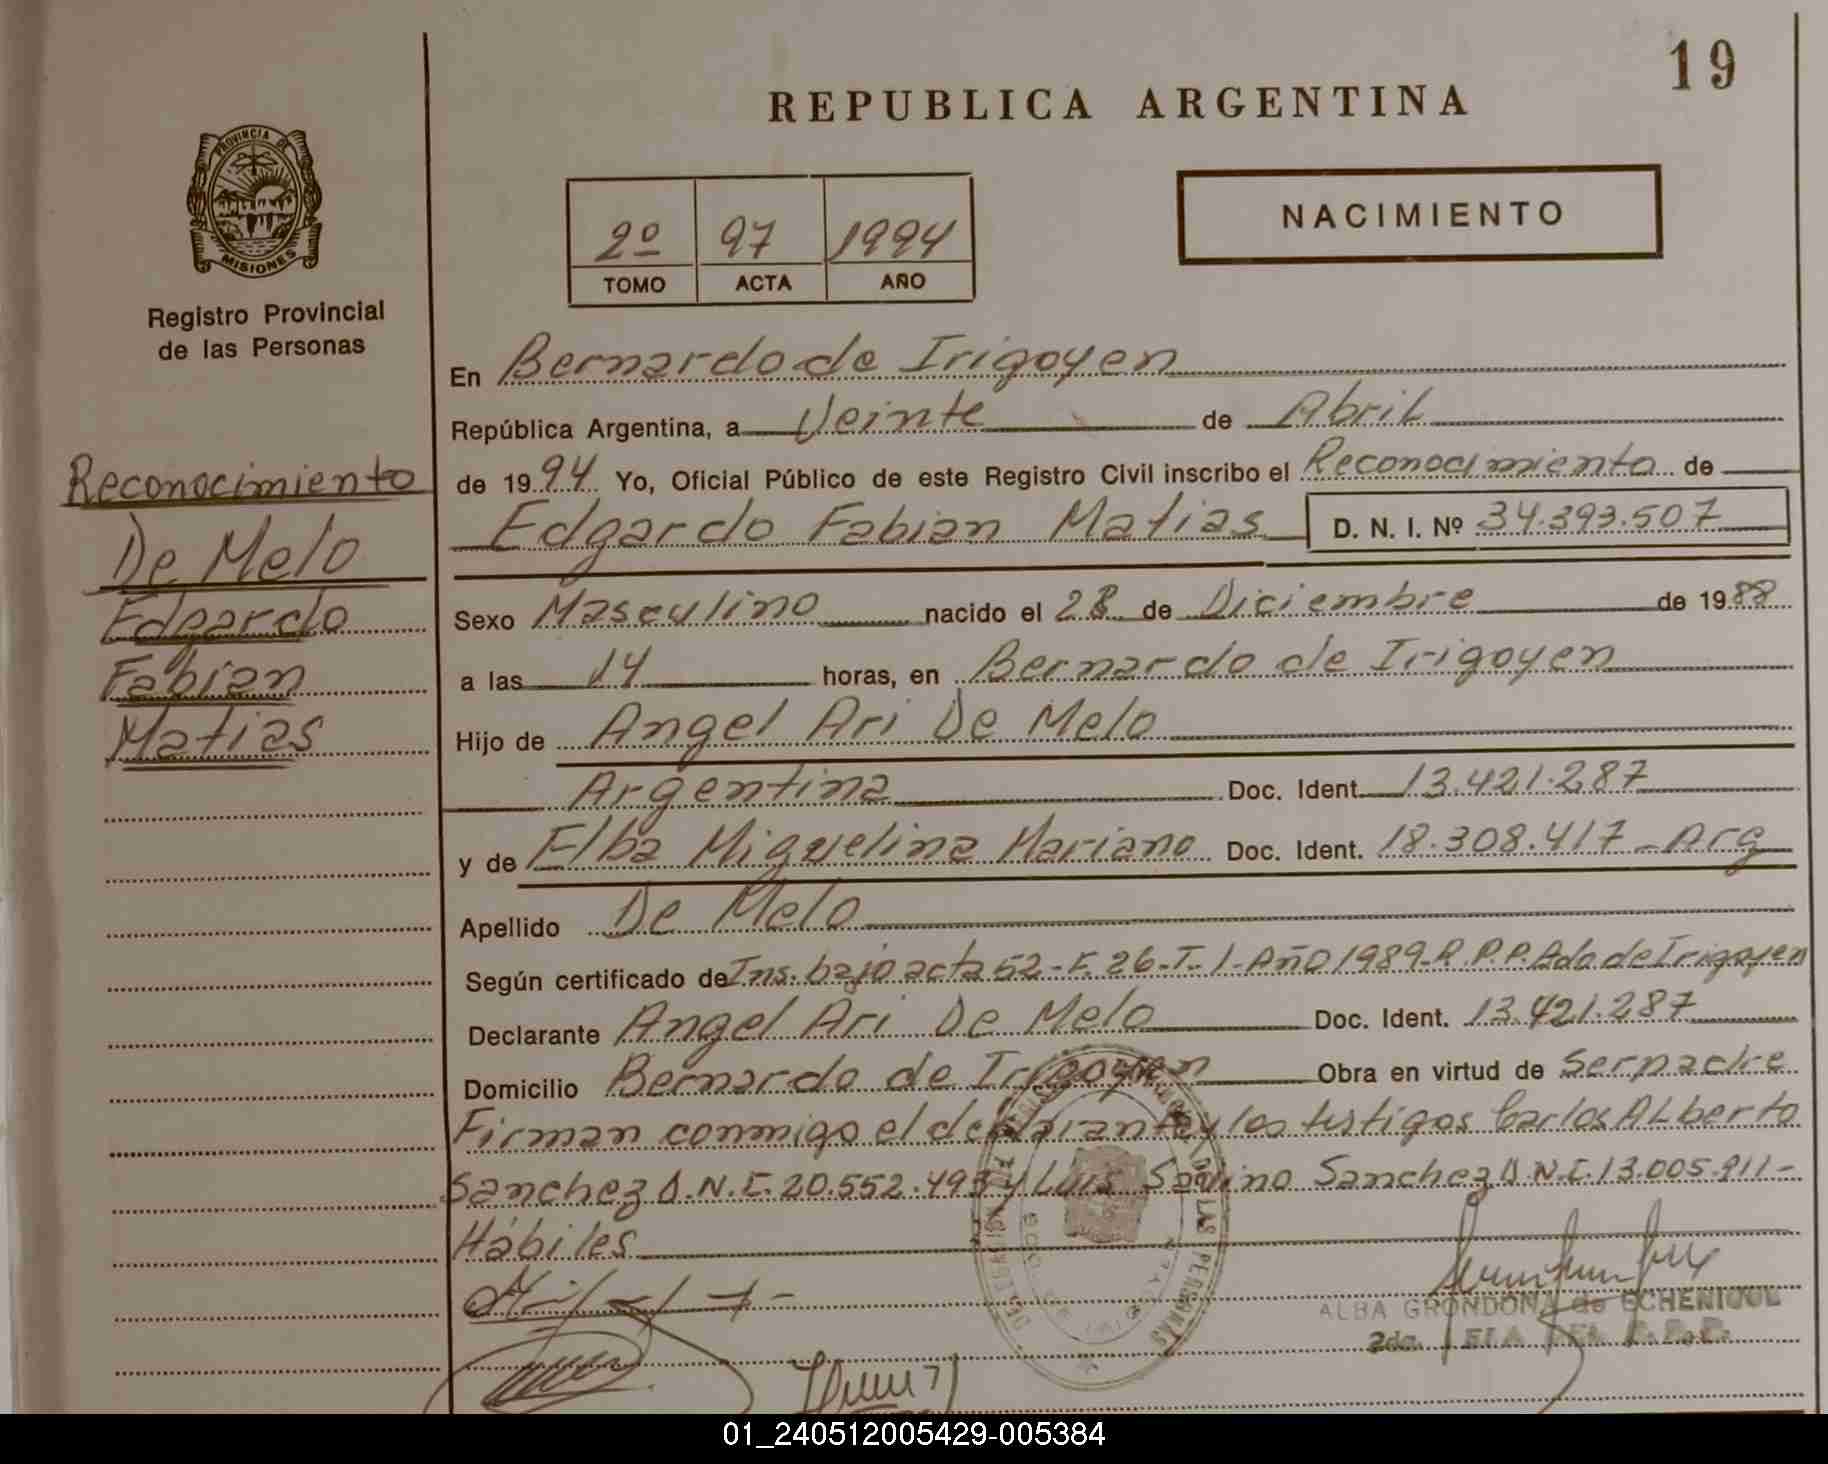 19
REPUBLICA ARGENTINA
PROVINCIA DE
MISIONES
Registro Provincial
de las Personas
2º 97 1994
TOMO ACTA AÑO
NACIMIENTO
Reconocimiento
De Melo
Edgardo
Fabian
Matias
En Bernardo de Irigoyen
República Argentina, a Veinte de Abril
de 1994 Yo, Oficial Público de este Registro Civil inscribo el Reconocimiento de
Edgardo Fabian Matias D. N. I. Nº 34.393.507
Sexo Masculino nacido el 28 de Diciembre de 1988
a las 14 horas, en Bernardo de Irigoyen
Hijo de Angel Ari De Melo
Argentina Doc. Ident. 13.421.287
y de Elba Miguelina Mariano Doc. Ident. 18.308.417 - Arg
Apellido De Melo
Según certificado de Ins. bajo acta 52 - F. 26 - T. 1 - Año 1989 - R.P.P. Bdo de Irigoyen
Declarante Angel Ari De Melo Doc. Ident. 13.421.287
Domicilio Bernardo de Irigoyen Obra en virtud de Ser padre
Firman conmigo el declarante y los testigos Carlos ALberto
Sanchez D.N.I. 20.552.493 y Luis Sanchez D.N.I. 13.005.911 -
Hábiles
ALBA GRONDONA de ECHENIQUE
01_240512005429-005384